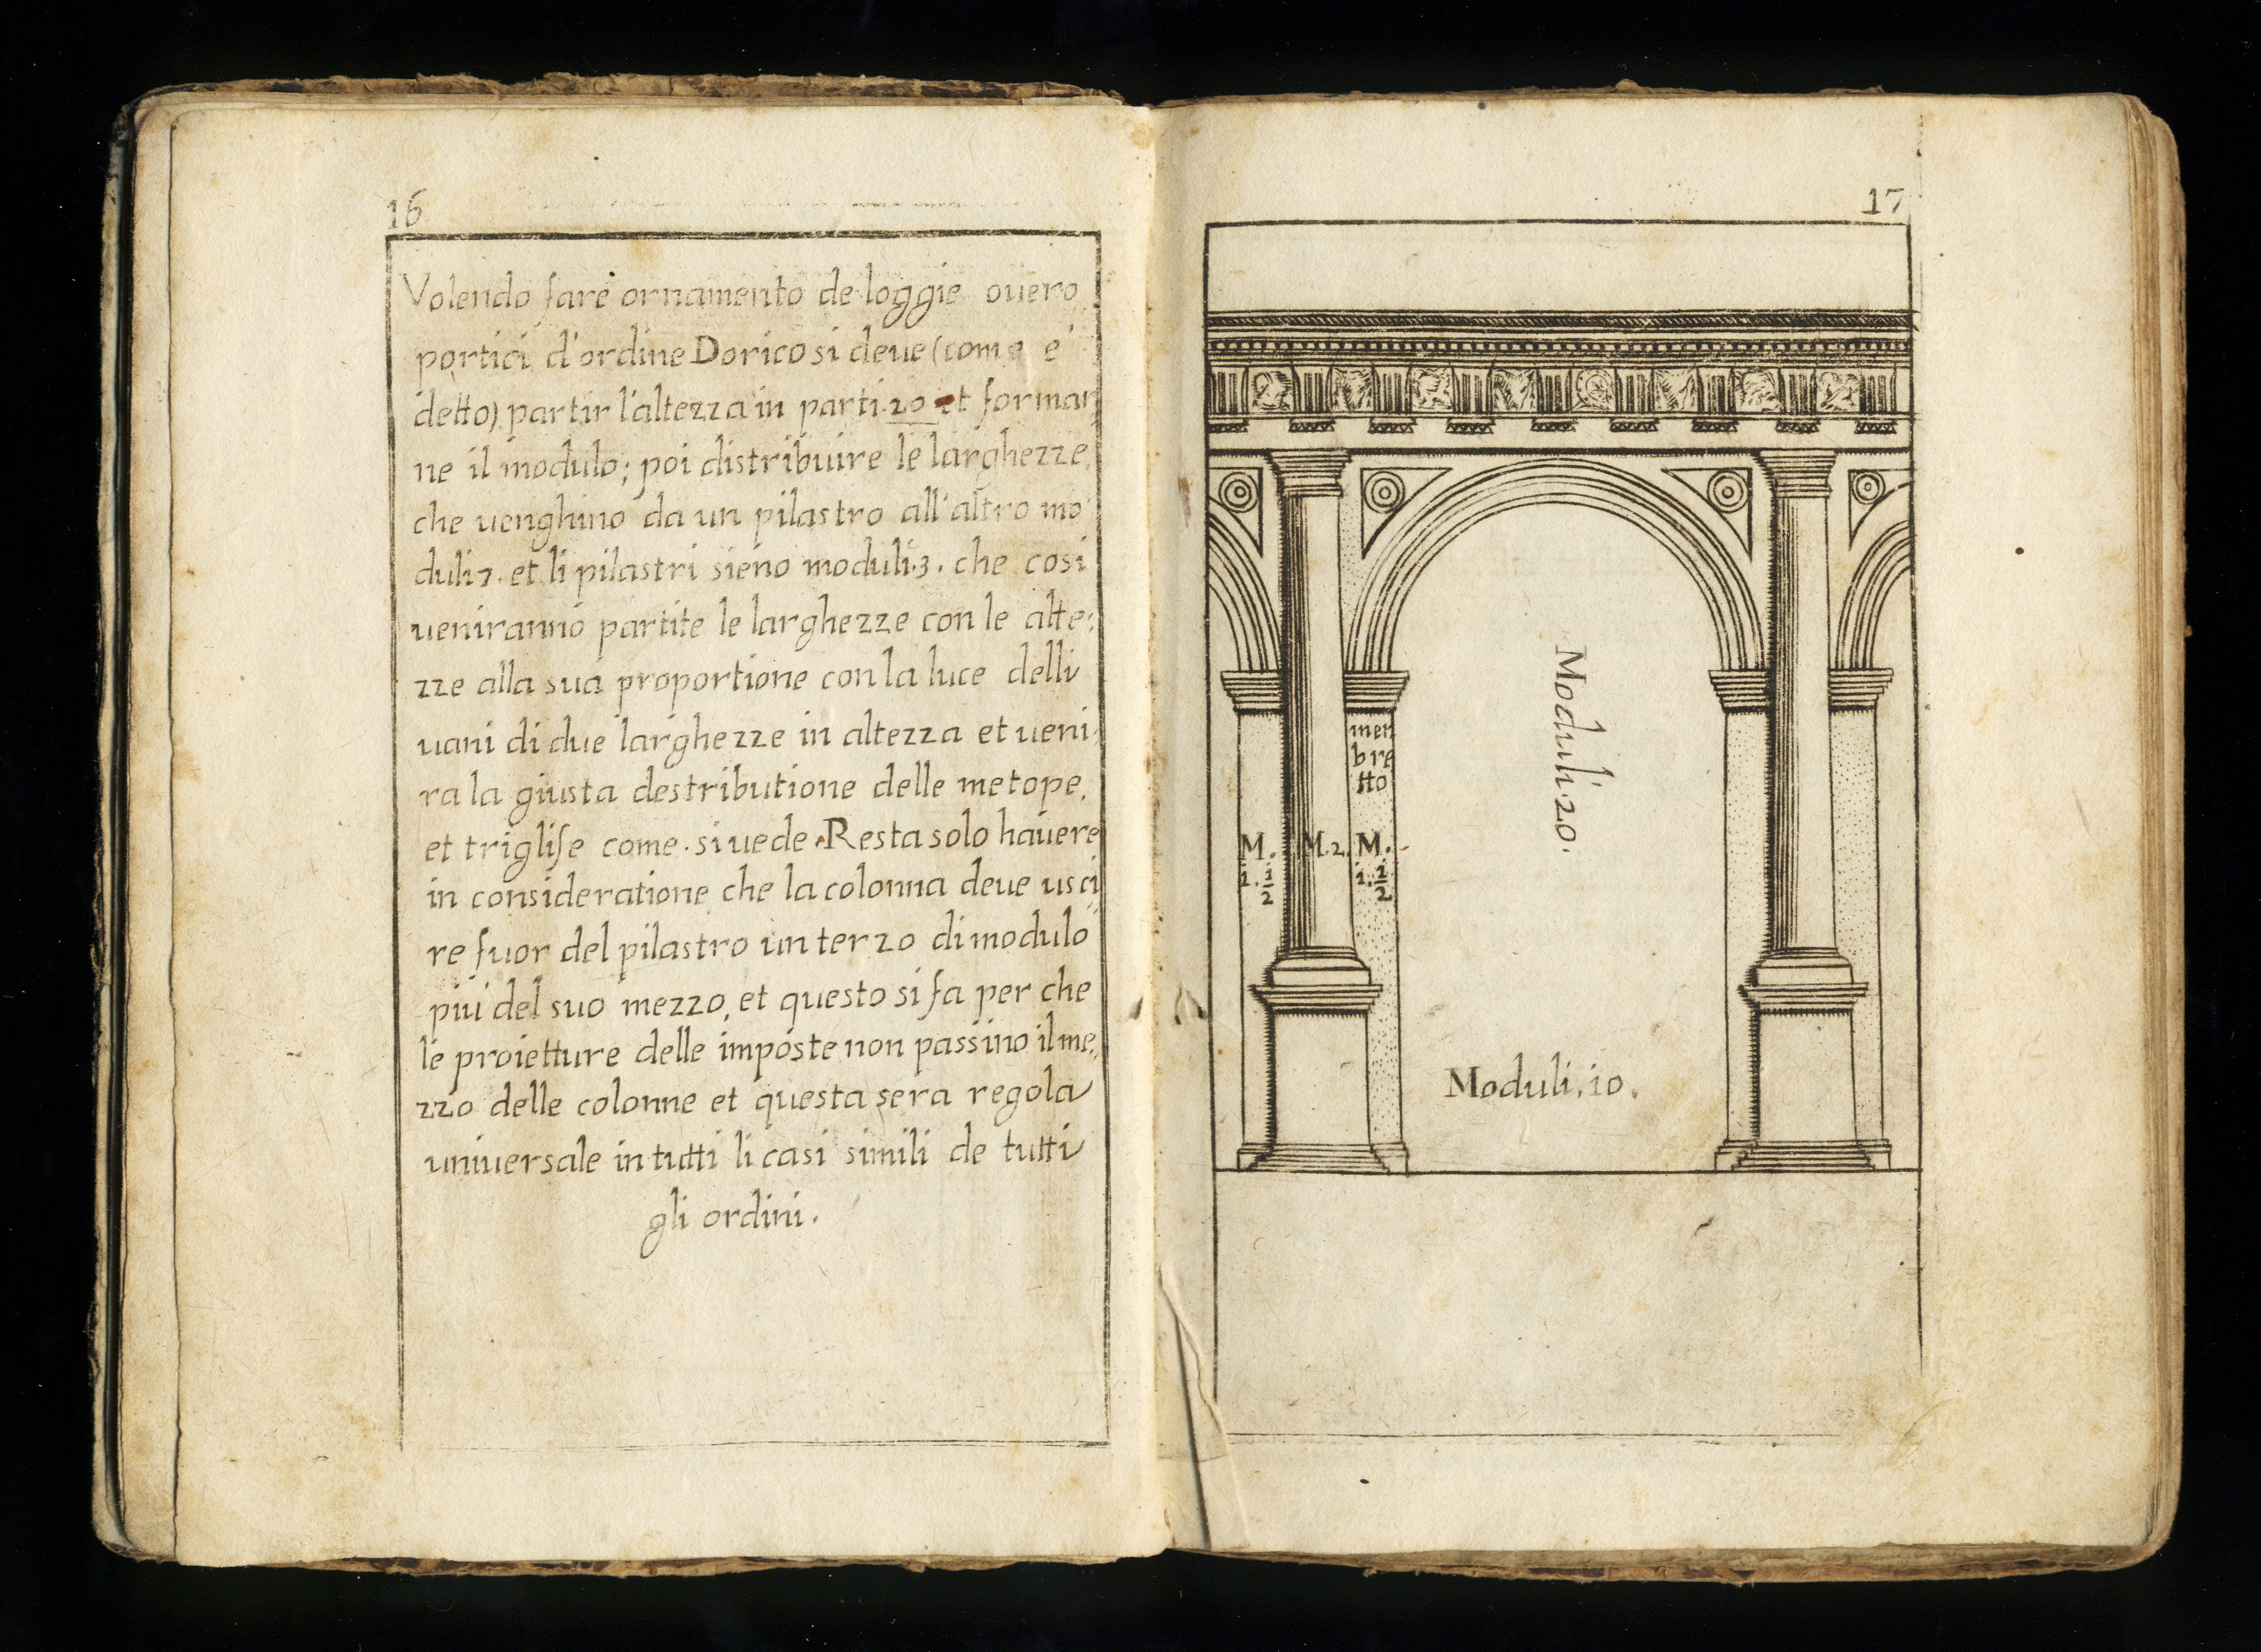 16
Volendo fare ornamento de loggie ouero
portici d'ordine Dorico si deue (come e'
detto) partir l'altezza in parti.20 et formar
ne il modulo; poi distribuire le larghezze,
che uenghino da un pilastro all'altro mo
duli 7. et li pilastri sieno moduli.3. che cosi
ueniranno partite le larghezze con le alte:
zze alla sua proportione con la luce delli
uani di due larghezze in altezza et ueni
ra la giusta destributione delle metope,
et triglife come. si uede. Resta solo hauere
in consideratione che la colonna deue usci
re fuor del pilastro un terzo di modulo
piu del suo mezzo, et questo si fa per che
le proietture delle imposte non passino il me,,
zzo delle colonne et questa sera regola
uniuersale in tutti li casi simili de tutti
gli ordini.
17
men
bre
tto
Moduli.20.
M. M.2. M.
1.1/2 1.1/2
Moduli.10.